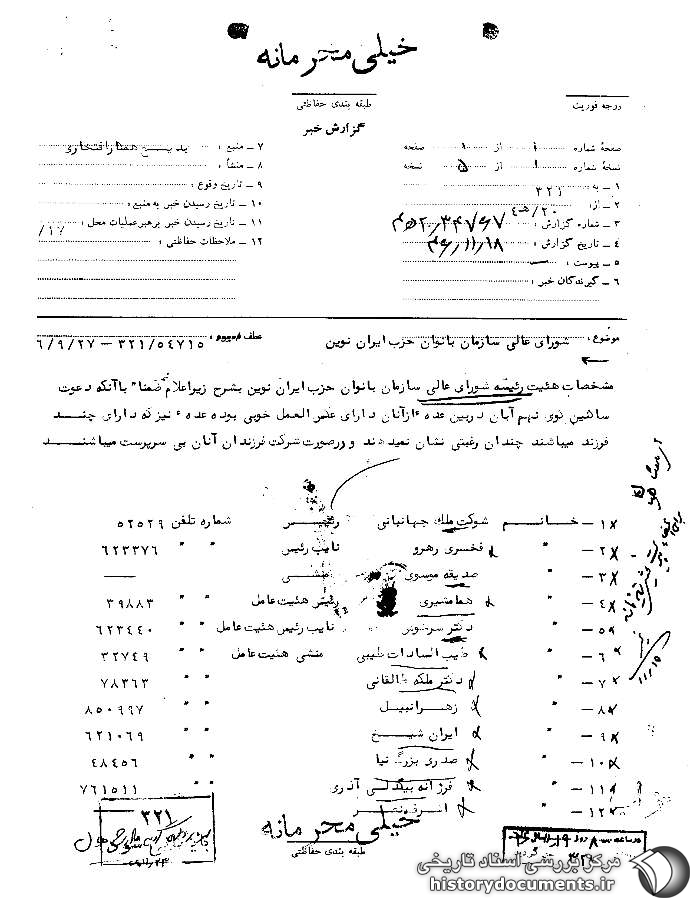 خیلی محرمانه
طبقه بندی حفاظتی
درجه فوریت
گزارش خبر
صفحهٔ شماره ۱ از ۱ صفحه
نسخهٔ شماره ۱ از ۵ نسخه
۱ - به ۳۲۱
۲ - از: ۲۰/هـ۴
۳ - شماره گزارش:
۴ - تاریخ گزارش: ۴۶/۱۱/۱۸
۵ - پیوست: —
۶ - گیرندگان خبر:
۷ - منبع:
۸ - منشأ:
۹ - تاریخ وقوع:
۱۰ - تاریخ رسیدن خبر به منبع:
۱۱ - تاریخ رسیدن خبر برهبر عملیات محل:
۱۲ - ملاحظات حفاظتی:
موضوع: شورای عالی سازمان بانوان حزب ایران نوین
عطف ۳۲۱/۵۴۷۱۵ - ۶/۹/۲۷
مشخصات هئیت رئیسه شورای عالی سازمان بانوان حزب ایران نوین بشرح زیراعلام ضمنا" باآنکه دعوت
ساشین نوی نهم آبان دربین عده ءازآنان دارای عکس العمل خوبی بوده عده ء نیز که دارای چند
فرزند میباشند چندان رغبتی نشان نمیدهند و ورصورت شرکت فرزندان آنان بی سرپرست میباشند
۱x - خانم شوکت ملک جهانبانی رئیس شماره تلفن ۵۲۵۲۹
۲x - " فخری رهرو نایب رئیس " " ۶۲۳۳۷۶
۳x - " صدیقه موسوی منشی —
۴x - " هما مشیری رئیس هئیت عامل " " ۳۹۸۸۳
۵x - " دکتر نایب رئیس هئیت عامل " " ۶۲۳۴۴۰
۶x - " طیب السادات طبیبی منشی هئیت عامل " " ۳۲۷۴۹
۷x - " دکتر ملکه طالقانی " " ۷۸۳۶۳
۸x - " زهرا نبیل " " ۸۵۰۹۹۷
۹x - " ایران شیخ " " ۶۲۱۰۶۹
۱۰x - " صدری بزرگ نیا " " ۴۸۴۵۶
۱۱x - " فرزانه بیگدلی آذری " " ۷۶۱۵۱۱
۱۲x - "
۳۲۱
خیلی محرمانه
طبقه بندی حفاظتی
مرکز بررسی اسناد تاریخی
historydocuments.ir